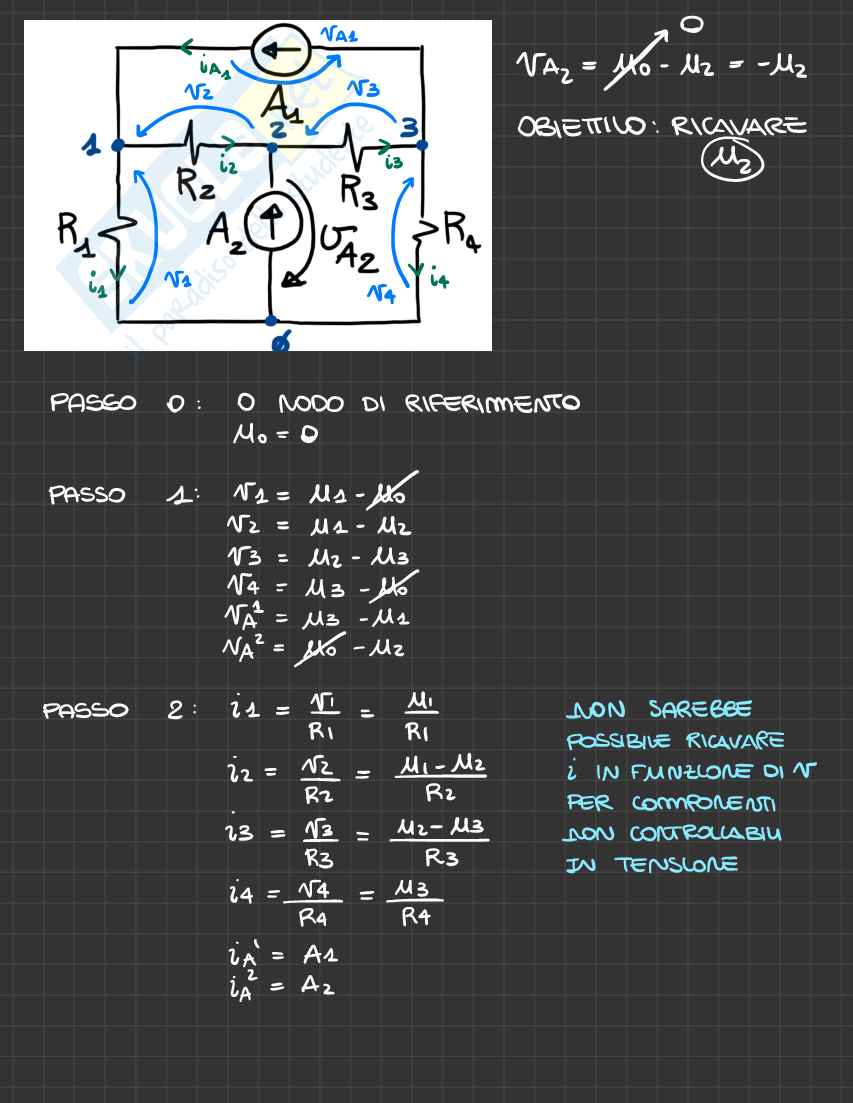 A₁
i_A₁
v_A₁
v₂
v₃
1
2
3
R₂
i₂
R₃
i₃
R₁
i₁
v₁
A₂
v_A2
R₄
i₄
v₄
0
il paradiso
v_A₂ = μ₀ - μ₂ = -μ₂
0
OBIETTILO: RICAVARE
μ₂
PASSO 0: 0 NODO DI RIFERIMENTO
μ₀ = 0
PASSO 1: v₁ = μ₁ - μ₀
v₂ = μ₁ - μ₂
v₃ = μ₂ - μ₃
v₄ = μ₃ - μ₀
v_A¹ = μ₃ - μ₁
v_A² = μ₀ - μ₂
PASSO 2: i₁ = v₁/R₁ = μ₁/R₁
i₂ = v₂/R₂ = μ₁-μ₂/R₂
i₃ = v₃/R₃ = μ₂-μ₃/R₃
i₄ = v₄/R₄ = μ₃/R₄
i_A¹ = A₁
i_A² = A₂
NON SAREBBE
POSSIBILE RICAVARE
i IN FUNZIONE DI v
PER COMPONENTI
NON CONTROLLABILI
IN TENSIONE